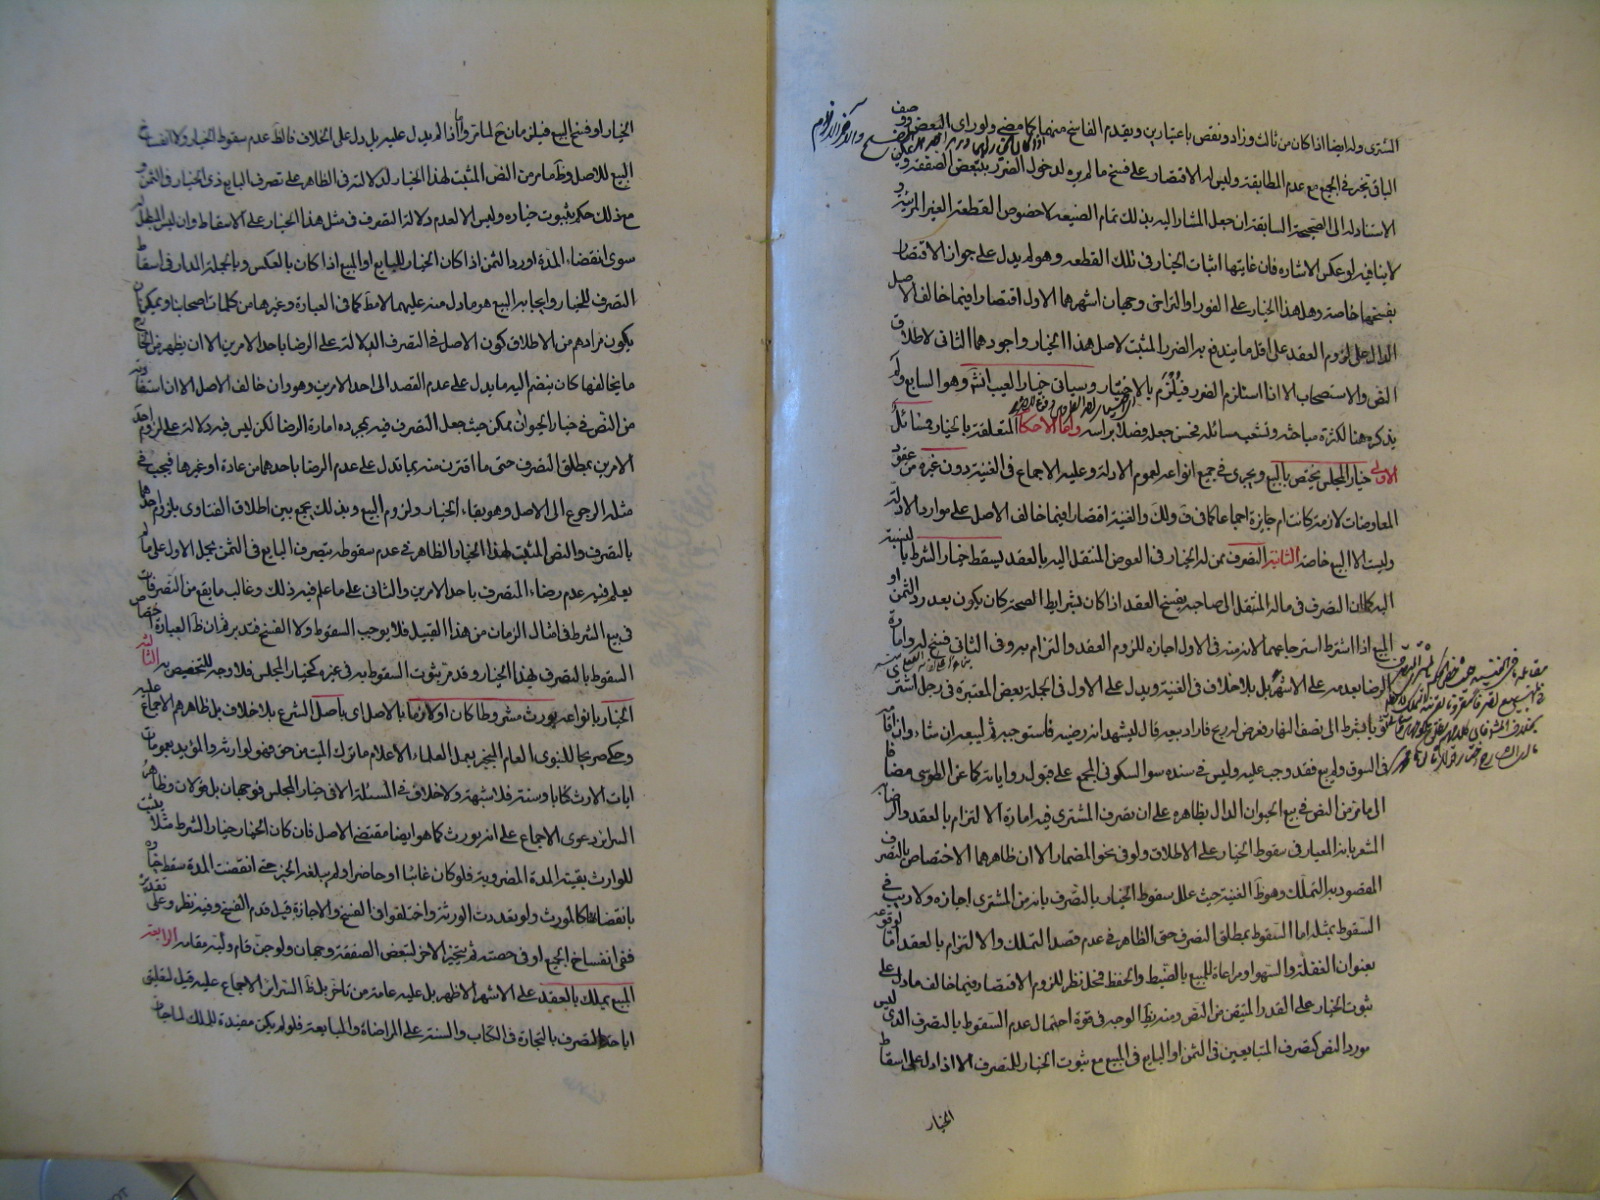 المشترى وله ايضا اذا كان من ثالث وزاد ونقص باعتبارين ويقدم الفاسخ منهما كما مضى ولو راى البعض ووصف
الباقى تخير فى الجميع مع عدم المطابقة وليس له الاقتصار على فسخ ما لم يره لدخول الضرر بتبعض الصفقة
الاستناد له الى الصحيحة السابقة ان جعل المشار اليه بذلك تمام الضيعة لا خصوص القطعة الغير المرئية و
لا ينافيه لو عكس الاشاره فان غايتها اثبات الخيار فى تلك القطعه وهو لم يدل على جواز الاقتصار
بفسخها خاصة وهل هذا الخيار على الفور او التراخى وجهان اشهرهما الاول اقتصارا فيما خالف الاصل
الدال على لزوم العقد على اقل ما يندفع به الضرر المثبت لاصل هذا الخيار واجودهما الثانى لاطلاق
النص والاستصحاب الا اذا استلزم الضرر فيلزم بالاختيار وسياتى خيار العيب انشاء الله وهو السابع ولم
يذكره هنا لكثرة مباحثه وتشعب مسائله فحسن جعله فصلا براسه واما الاحكام المتعلقة بالخيار فمسائل
الاولى خيار المجلس يختص بالبيع ويجرى فى جميع انواعه لعموم الادلة وعليه الاجماع فى الغنية دون غيره من عقود
المعاوضات لازمة كانت ام جايزة اجماعا كما فى ف ولك والغنية اقتصارا فيما خالف الاصل على موارد الادلة
وليست الا البيع خاصة الثانية التصرف ممن له الخيار فى العوض المنتقل اليه بالعقد يسقط خيار الشرط بالنسبة
اليه كما ان التصرف فى ماله المنتقل الى صاحبه يفسخ العقد اذا كان بشرايط الصحة كان يكون بعد رد الثمن او
المبيع اذا اشترط استرجاعهما لانه منه فى الاول اجازه للزوم العقد والتزام به وفى الثانى فسخ له وامارة
الرضا بعدمه على الاشهر بل بلا خلاف فى الغنية ويدل على الاول فى الجملة بعض المعتبرة فى رجل اشترى
ثوبا بشرط الى نصف النهار فعرض له ربح فاراد بيعه قال ليشهد انه رضيه فاستوجبه ثم ليبعه ان شاء وان اقامه
فى السوق ولم يبع فقد وجب عليه وليس فى سنده سوى السكونى المجمع على قبول رواياته كما عن الطوسى مضافا
الى ما مر من النص فى بيع الحيوان الدال بظاهره على ان تصرف المشترى فيه امارة الالتزام بالعقد والرضا به
المشعر بانه المعيار فى سقوط الخيار على الاطلاق ولو فى نحو المضمار الا ان ظاهرهما الاختصاص بالتصرف
المقصود به التملك وهو ظ الغنية حيث علل سقوط الخيار بالتصرف بانه من المشترى اجازه ولا ريب فى
السقوط بمثله اما السقوط بمطلق التصرف حتى الظاهر فى عدم قصد التملك والالتزام بالعقد اما لوقوعه
بعنوان الغفلة والسهو او مراعاة للمبيع بالضبط والحفظ فمحل نظر للزوم الاقتصار فيما خالف ما دل على
ثبوت الخيار على القدر المتيقن من النص ومنه يظ الوجه فى قوة احتمال عدم السقوط بالتصرف الذى ليس
مورد النص كتصرف المتبايعين فى الثمن او البايع فى المبيع مع ثبوت الخيار للمتصرف الا اذا دل على اسقاط
الخيار
الخيار او فسخ البيع فيلزمان ح لما مر واما اذا لم يدل عليه بل دل على الخلاف فالظ عدم سقوط الخيار ولا انفساخ
البيع للاصل وظ ما مر من النص المثبت لهذا الخيار لدلالته فى الظاهر على تصرف البايع ذى الخيار فى الثمن و
مع ذلك حكم بثبوت خياره وليس الا لعدم دلالة التصرف فى مثل هذا الخيار على الاسقاط وان ليس المبطل له
سوى انقضاء المدة او رد الثمن اذا كان الخيار للبايع او المبيع اذا كان بالعكس وبالجملة المدار فى اسقاط
التصرف للخيار وايجابه البيع هو ما دل منه عليهما لا مط كما فى العبارة وغيرها من كلمات اصحابنا ويمكن ان
يكون مرادهم من الاطلاق كون الاصل فى التصرف الدلالة على الرضا باحد الامرين الا ان يظهر من الخارج
ما يخالفها كان ينضم اليه ما يدل على عدم القصد الى احد الامرين وهو وان خالف الاصل الا ان استفادته
من النص فى خيار الحيوان ممكن حيث جعل التصرف فيه بمجرده امارة الرضا لكن ليس فيه دلالة على لزوم احد
الامرين بمطلق التصرف حتى ما اقترن منه بما تدل على عدم الرضا باحدهما من عادة او غيرها فيجب فى
مثله الرجوع الى الاصل وهو بقاء الخيار ولزوم البيع وبذلك يجمع بين اطلاق الفتاوى بلزوم احدهما
بالتصرف والنص المثبت لهذا الخيار الظاهر فى عدم سقوطه بتصرف البايع فى الثمن بحمل الاول على ما لم
يعلم فيه عدم رضاء المتصرف باحد الامرين والثانى على ما علم فيه ذلك وغالب ما يقع من التصرفات
فى بيع الشرط فى امثال الزمان من هذا القبيل فلا يوجب السقوط ولا الفسخ فتدبر ثم ان ظ العبارة اختصاص
السقوط بالتصرف بهذا الخيار وقد مر ثبوت السقوط به فى غيره كخيار المجلس فلا وجه للتخصيص به الثالثة
الخيار بانواعه يورث مشروطا كان او لازما بالاصل اى باصل الشرع بلا خلاف بل ظاهرهم الاجماع عليه
وحكى صريحا للنبوى العام المنجبر بعمل العلماء الاعلام ما ترك الميت من حق فهو لوارثه والمؤيد بعمومات
ايات الارث كتابا وسنة فلا شبهة ولا خلاف فى المسئلة الا فى خيار المجلس فوجهان بل قولان وظاهر
السرائر دعوى الاجماع على انه يورث كما هو ايضا مقتضى الاصل فان كان الخيار خيار الشرط مثلا يثبت
للوارث بقية المدة المضروبة فلو كان غائبا او حاضرا ولم يبلغه الخبر حتى انقضت المدة سقط خياره
بانقضائها كالمورث ولو تعددت الورثة واختلفوا فى الفسخ والاجازة قيل قدم الفسخ وفيه نظر وعلى تقديره
ففى انفساخ الجميع او فى حصته ثم يتخير الاخر لتبعض الصفقة وجهان ولو جن قام وليه مقامه الرابعة
المبيع يملك بالعقد على الاشهر الاظهر بل عليه عامة من تاخر بل ظ السرائر الاجماع عليه قيل لتعليق
اباحة التصرف بالتجارة فى الكتاب والسنة على المراضاة والمبايعة فلو لم يكن مفيدة للملك لما جاز